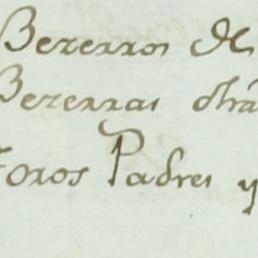 Bezerros de
Bezerras otra
Toros Padres y